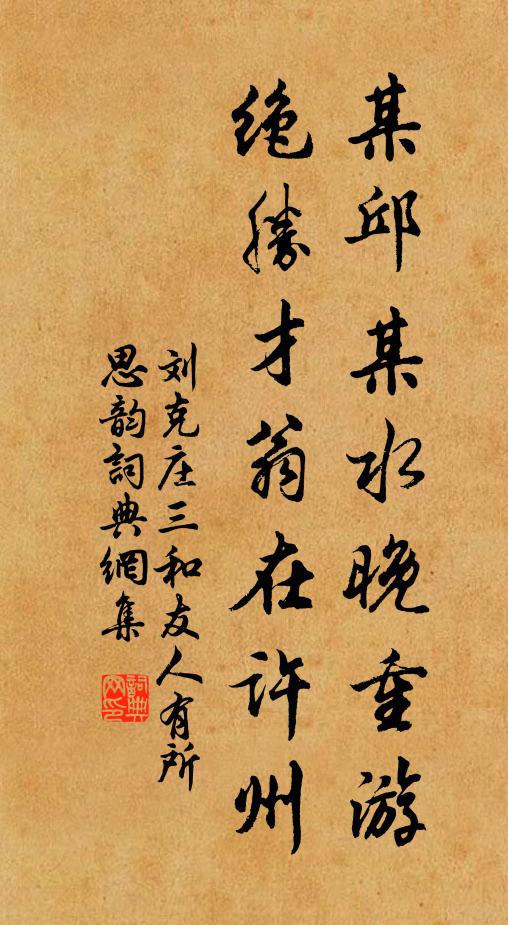 某邱某水晚重游
绝勝才翁在许州
刘克庄三和友人有所
思韵詞典網集
詞典網印